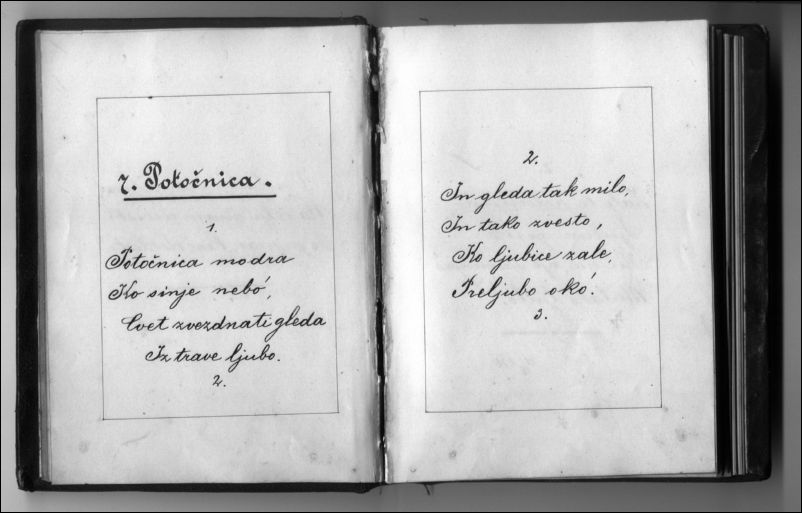 7. Potočnica.
1.
Potočnica modra
Ko sinje nebó,
Cvet zvezdnati gleda
Iz trave ljubo.
2.
2.
In gleda tak milo,
In tako zvesto,
Ko ljubice zale,
Preljubo okó.
3.